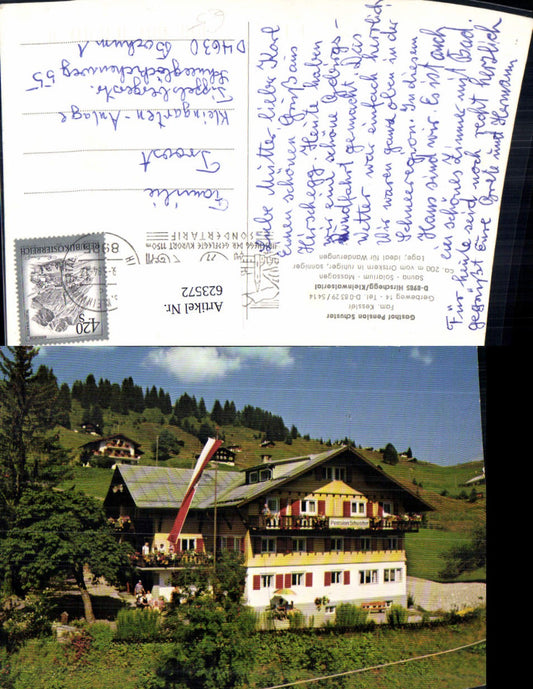 Liebe Mutter lieber Karl
Einen schönen Gruß aus
Hirschegg. Heute haben
wir eine schöne Gebirgs-
rundfahrt gemacht. Das
Wetter war einfach herrlich
Wir waren ganz oben in der
Schneeregion. In diesem
Haus sind wir. Es ist auch
ein schönes Zimmer mit Bad.
Für heute seid noch recht herzlich
gegrüßt Eure Grete und Hermann
Familie
Trovst
Kleingarten-Anlage
Schneeglöckchenweg 55
D 4630 Bochum 1
REPUBLIK ÖSTERREICH
4.20
S
SONDERTARIF
Gasthof Pension Schuster
Fam. Kessler
Gerbeweg 14 - Tel. D-08329/5414
D-8985 Hirschegg/Kleinwalsertal
Sauna - Solarium - Massagen
Ca. 200 m vom Ortskern in ruhiger, sonniger
Lage; ideal für Wanderungen
Artikel Nr.
623572
Pension Schuster